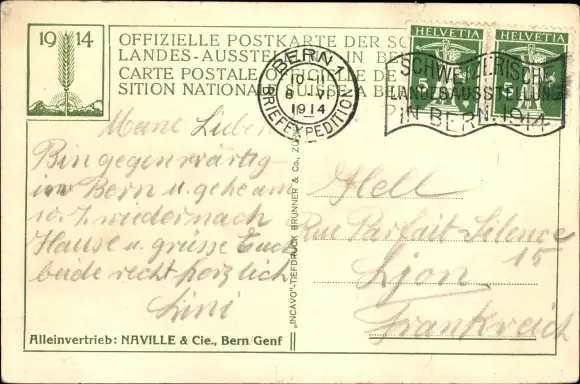 1914
OFFIZIELLE POSTKARTE DER SC
LANDES-AUSSTELL IN BE
CARTE POSTALE OFFICIELLE DE
SITION NATIONALE SUISSE À BE
BERN
10
8. VI
1914
BRIEFEXPEDITION
HELVETIA
5
HELVETIA
SCHWEIZERISCHE
LANDESAUSSTELLUNG
IN BERN 1914
Meine Lieben
Bin gegenwärtig
in Bern u. gehe am
10. 7. wieder nach
Hause u. grüsse Euch
beide recht herzlich
Lini
Rue Parfait-Silence
15
Lyon
Frankreich
„INCAVO"-TIEFDRUCK BRUNNER & Co., ZÜ
Alleinvertrieb: NAVILLE & Cie., Bern Genf